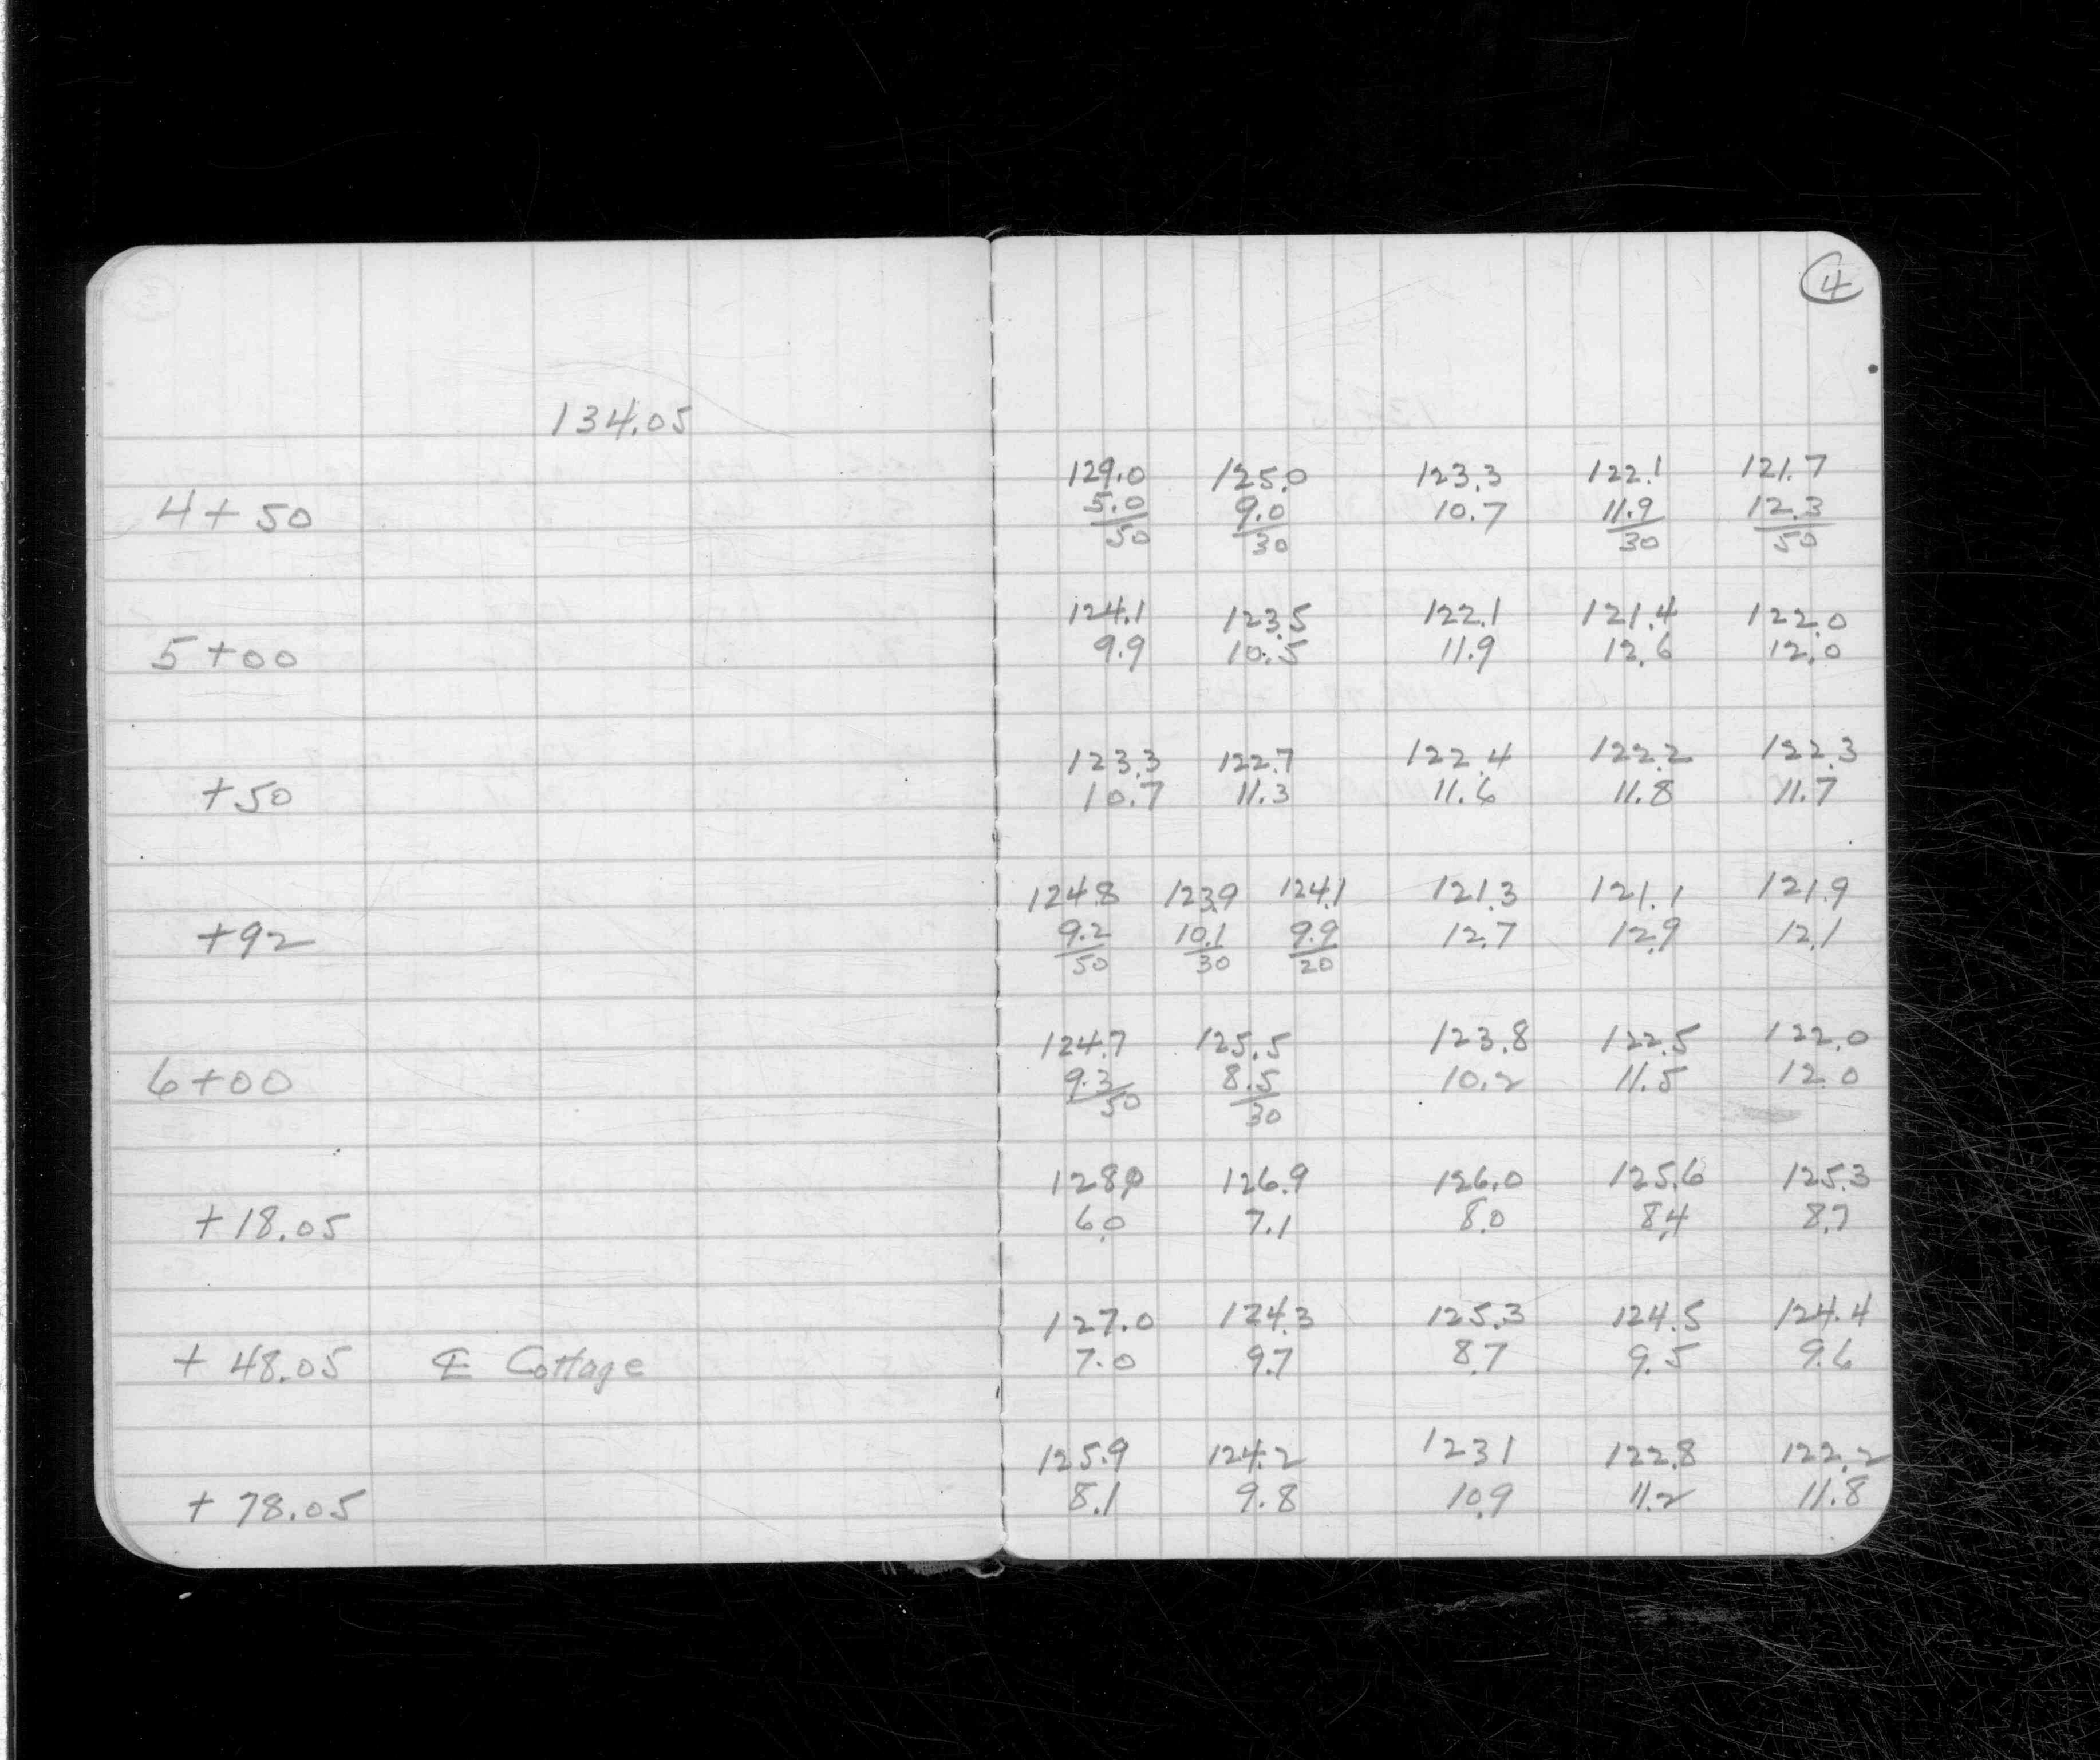 4
134.05
129.0 125.0 123.3 122.1 121.7
4+50 5.0 9.0 10.7 11.9 12.3
50 30 30 50
124.1 123.5 122.1 121.4 122.0
5+00 9.9 10.5 11.9 12.6 12.0
123.3 122.7 122.4 122.2 122.3
+50 10.7 11.3 11.6 11.8 11.7
124.8 123.9 124.1 121.3 121.1 121.9
+92 9.2 10.1 9.9 12.7 12.9 12.1
50 30 20
124.7 125.5 123.8 122.5 122.0
6+00 9.3 8.5 10.2 11.5 12.0
50 30
128.0 126.9 126.0 125.6 125.3
+18.05 6.0 7.1 8.0 8.4 8.7
127.0 124.3 125.3 124.5 124.4
+48.05 ℄ Cottage 7.0 9.7 8.7 9.5 9.6
125.9 124.2 123.1 122.8 122.2
+78.05 8.1 9.8 10.9 11.2 11.8